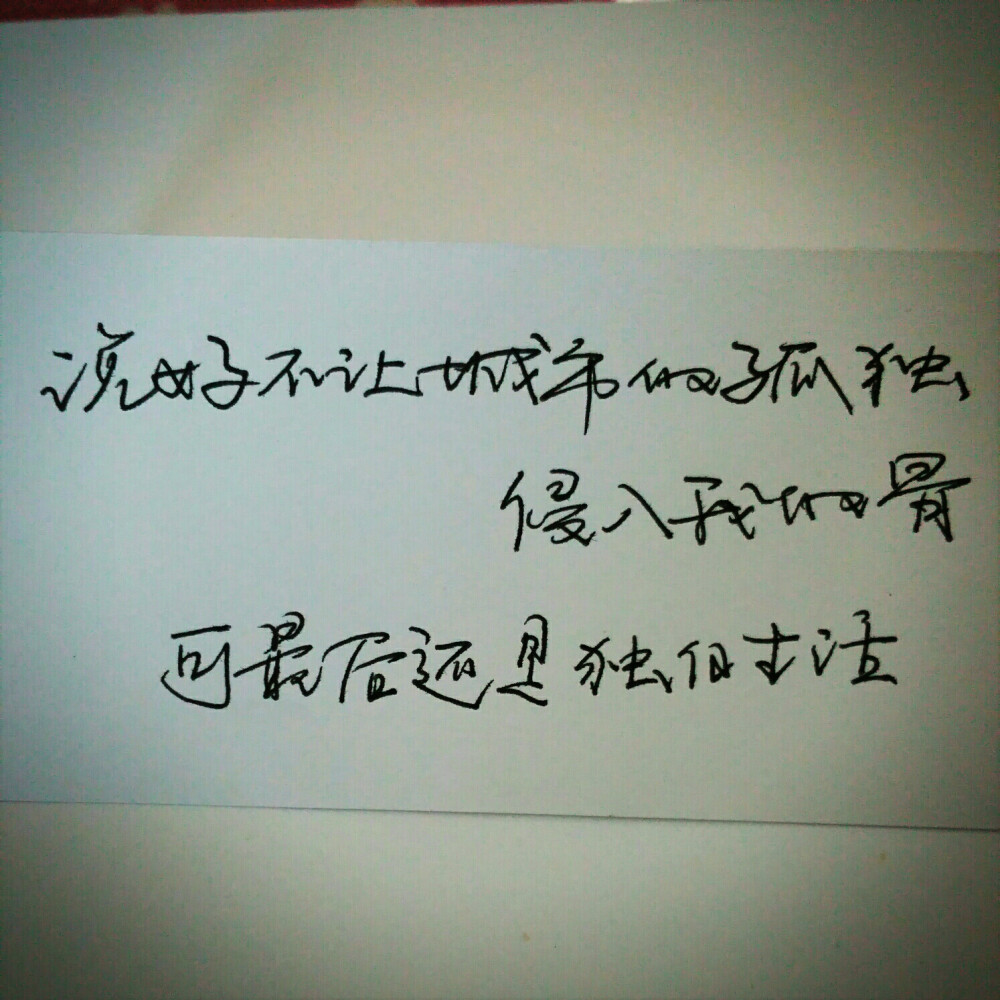 说好不让城市的孤独
侵入我的骨
可最后还是独自生活